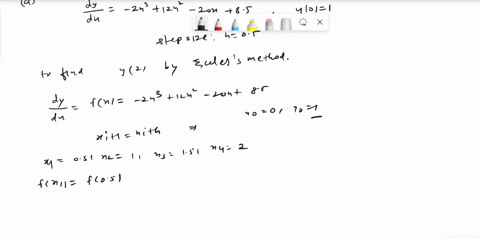 (a) dy/dx = -2x³ + 12x² - 20x + 8.5 , y(0)=1
step size: h = 0.5
to find y(2) by Euler's method.
dy/dx = f(x) = -2x³ + 12x² - 20x + 8.5
x0 = 0, y0 = 1
xi+1 = xi+h ⇒
x1 = 0.5, x2 = 1, x3 = 1.5, x4 = 2
f(x1) = f(0.5)